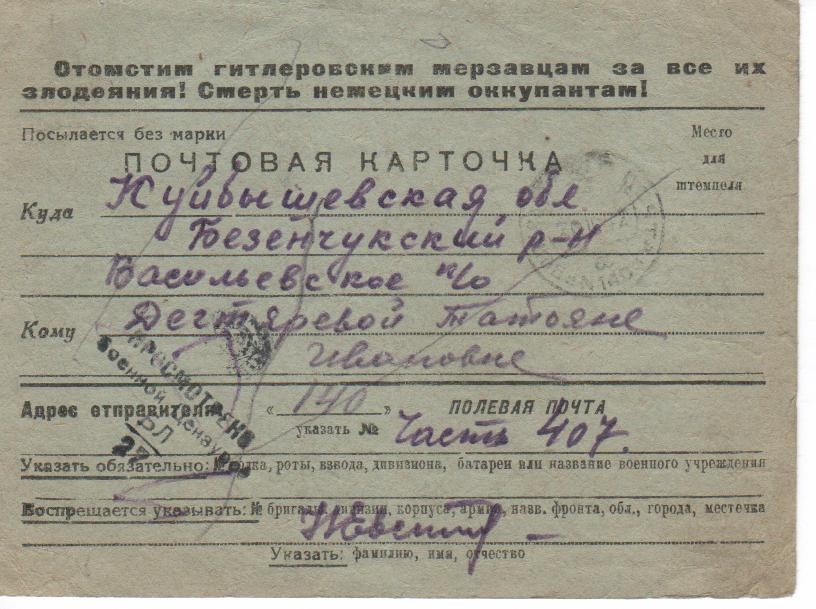 Отомстим гитлеровским мерзавцам за все их
злодеяния! Смерть немецким оккупантам!
Посылается без марки
Место
для
штемпеля
ПОЧТОВАЯ КАРТОЧКА
Куда Куйбышевская обл
Безенчукский р-н
Васильевское п/о
Кому Дегтяревой Татьяне
Ивановне
ПРОСМОТРЕНО
Военной Цензурой
Адрес отправителя « 140 » ПОЛЕВАЯ ПОЧТА
указать № Часть 407.
Указать обязательно: № полка, роты, взвода, дивизиона, батареи или название военного учреждения
Воспрещается указывать: № бригады, дивизии, корпуса, армии, назв. фронта, обл., города, местечка
Указать: фамилию, имя, отчество